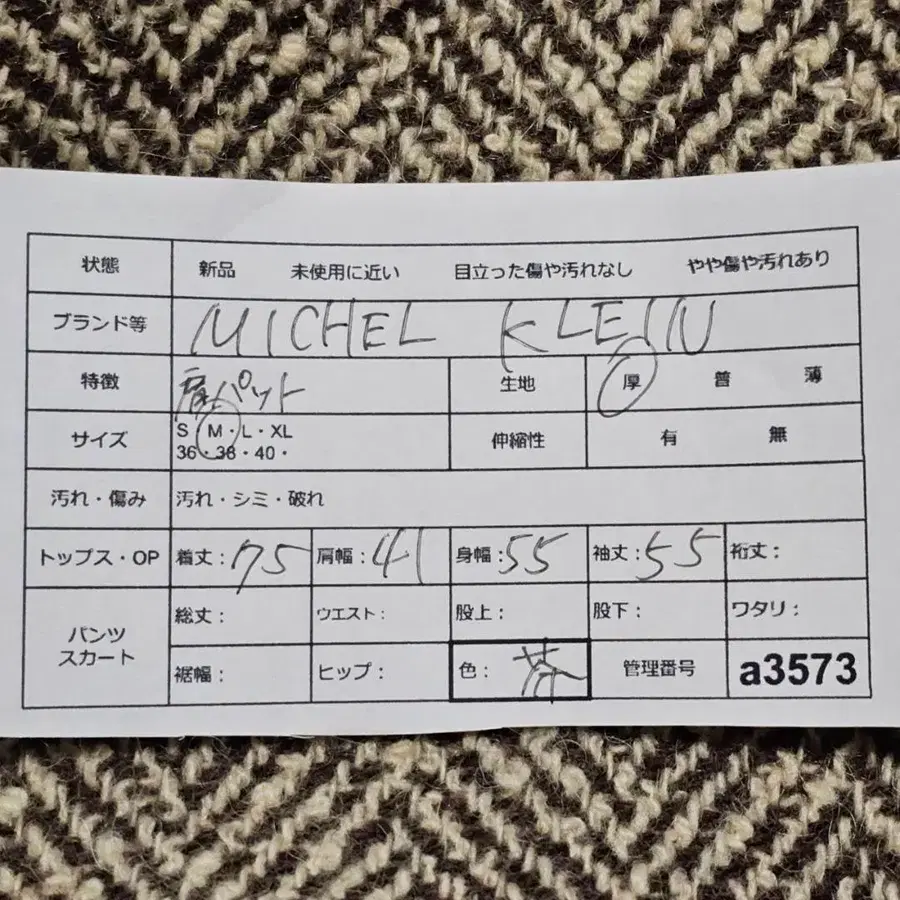 状態 新品 未使用に近い 目立った傷や汚れなし やや傷や汚れあり
ブランド等 MICHEL KLEIN
特徴 肩パット 生地 厚 普 薄
サイズ S・M・L・XL 伸縮性 有 無
36・38・40・
汚れ・傷み 汚れ・シミ・破れ
トップス・OP 着丈：75 肩幅：41 身幅：55 袖丈：55 裄丈：
パンツ スカート 総丈： ウエスト： 股上： 股下： ワタリ：
裾幅： ヒップ： 色：茶 管理番号 a3573